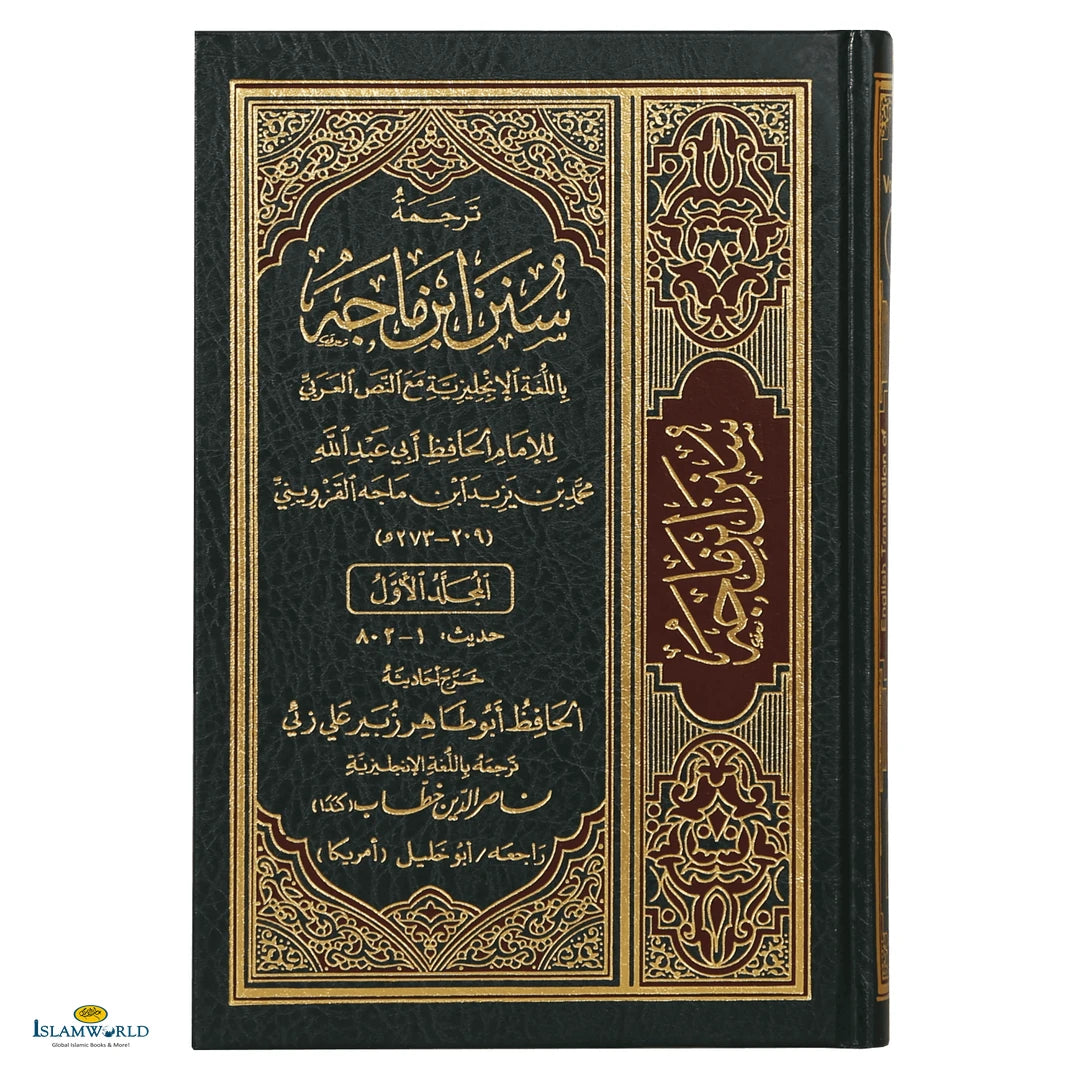 تَرجَمَةُ
سُنَنِ ابْنِ مَاجَهْ
بِاللُّغَةِ الإِنْجِلِيزِيَّةِ مَعَ النَّصِ العَرَبِيِّ
لِلإِمَامِ الحَافِظِ أَبِي عَبْدِ اللَّه
مُحَمَّدِ بْنِ يَزِيدَ ابْنِ مَاجَه القَزْوِينِيِّ
(٢٠٩-٢٧٣ھ)
المُجَلَّدُ الأَوَّلُ
حديث: ١-٨٠٢
خَرَّجَ أحَادِيثَهُ
الحَافِظُ أَبُو طَاهِر زُبَير عَلي زَئي
تَرجَمَهُ بِاللُّغَةِ الإنجليزيَّةِ
ناصر الدّين خطّاب (كندا)
رَاجعَه/ أبو خَليل (أمريكا)
سُنَنِ ابْنِ مَاجَهْ
English Translation of
ISLAMWORLD
Global Islamic Books & More!